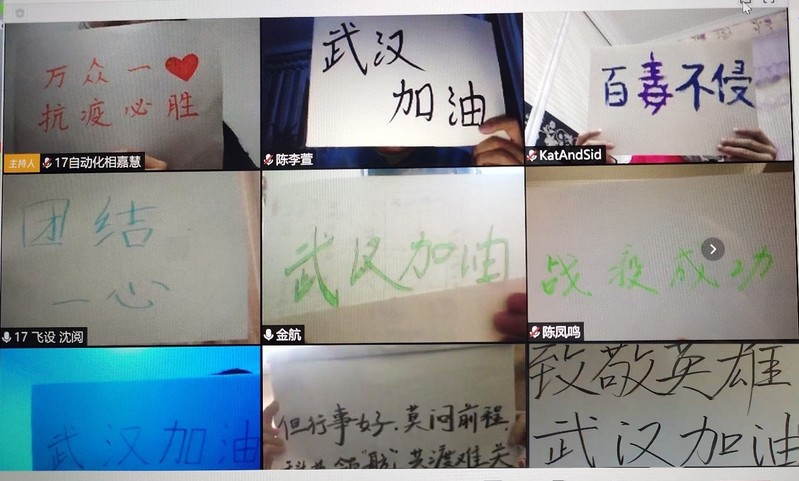 万众一❤
抗疫必胜
主持人 17自动化相嘉慧
武汉
加油
陈李萱
百毒不侵
KatAndSid
团结
一心
17 飞设 沈阅
武汉加油
金航
战疫成功
陈凤鸣
武汉加油
但行事好,莫问前程,
领"航"共渡难关
致敬英雄
武汉加油